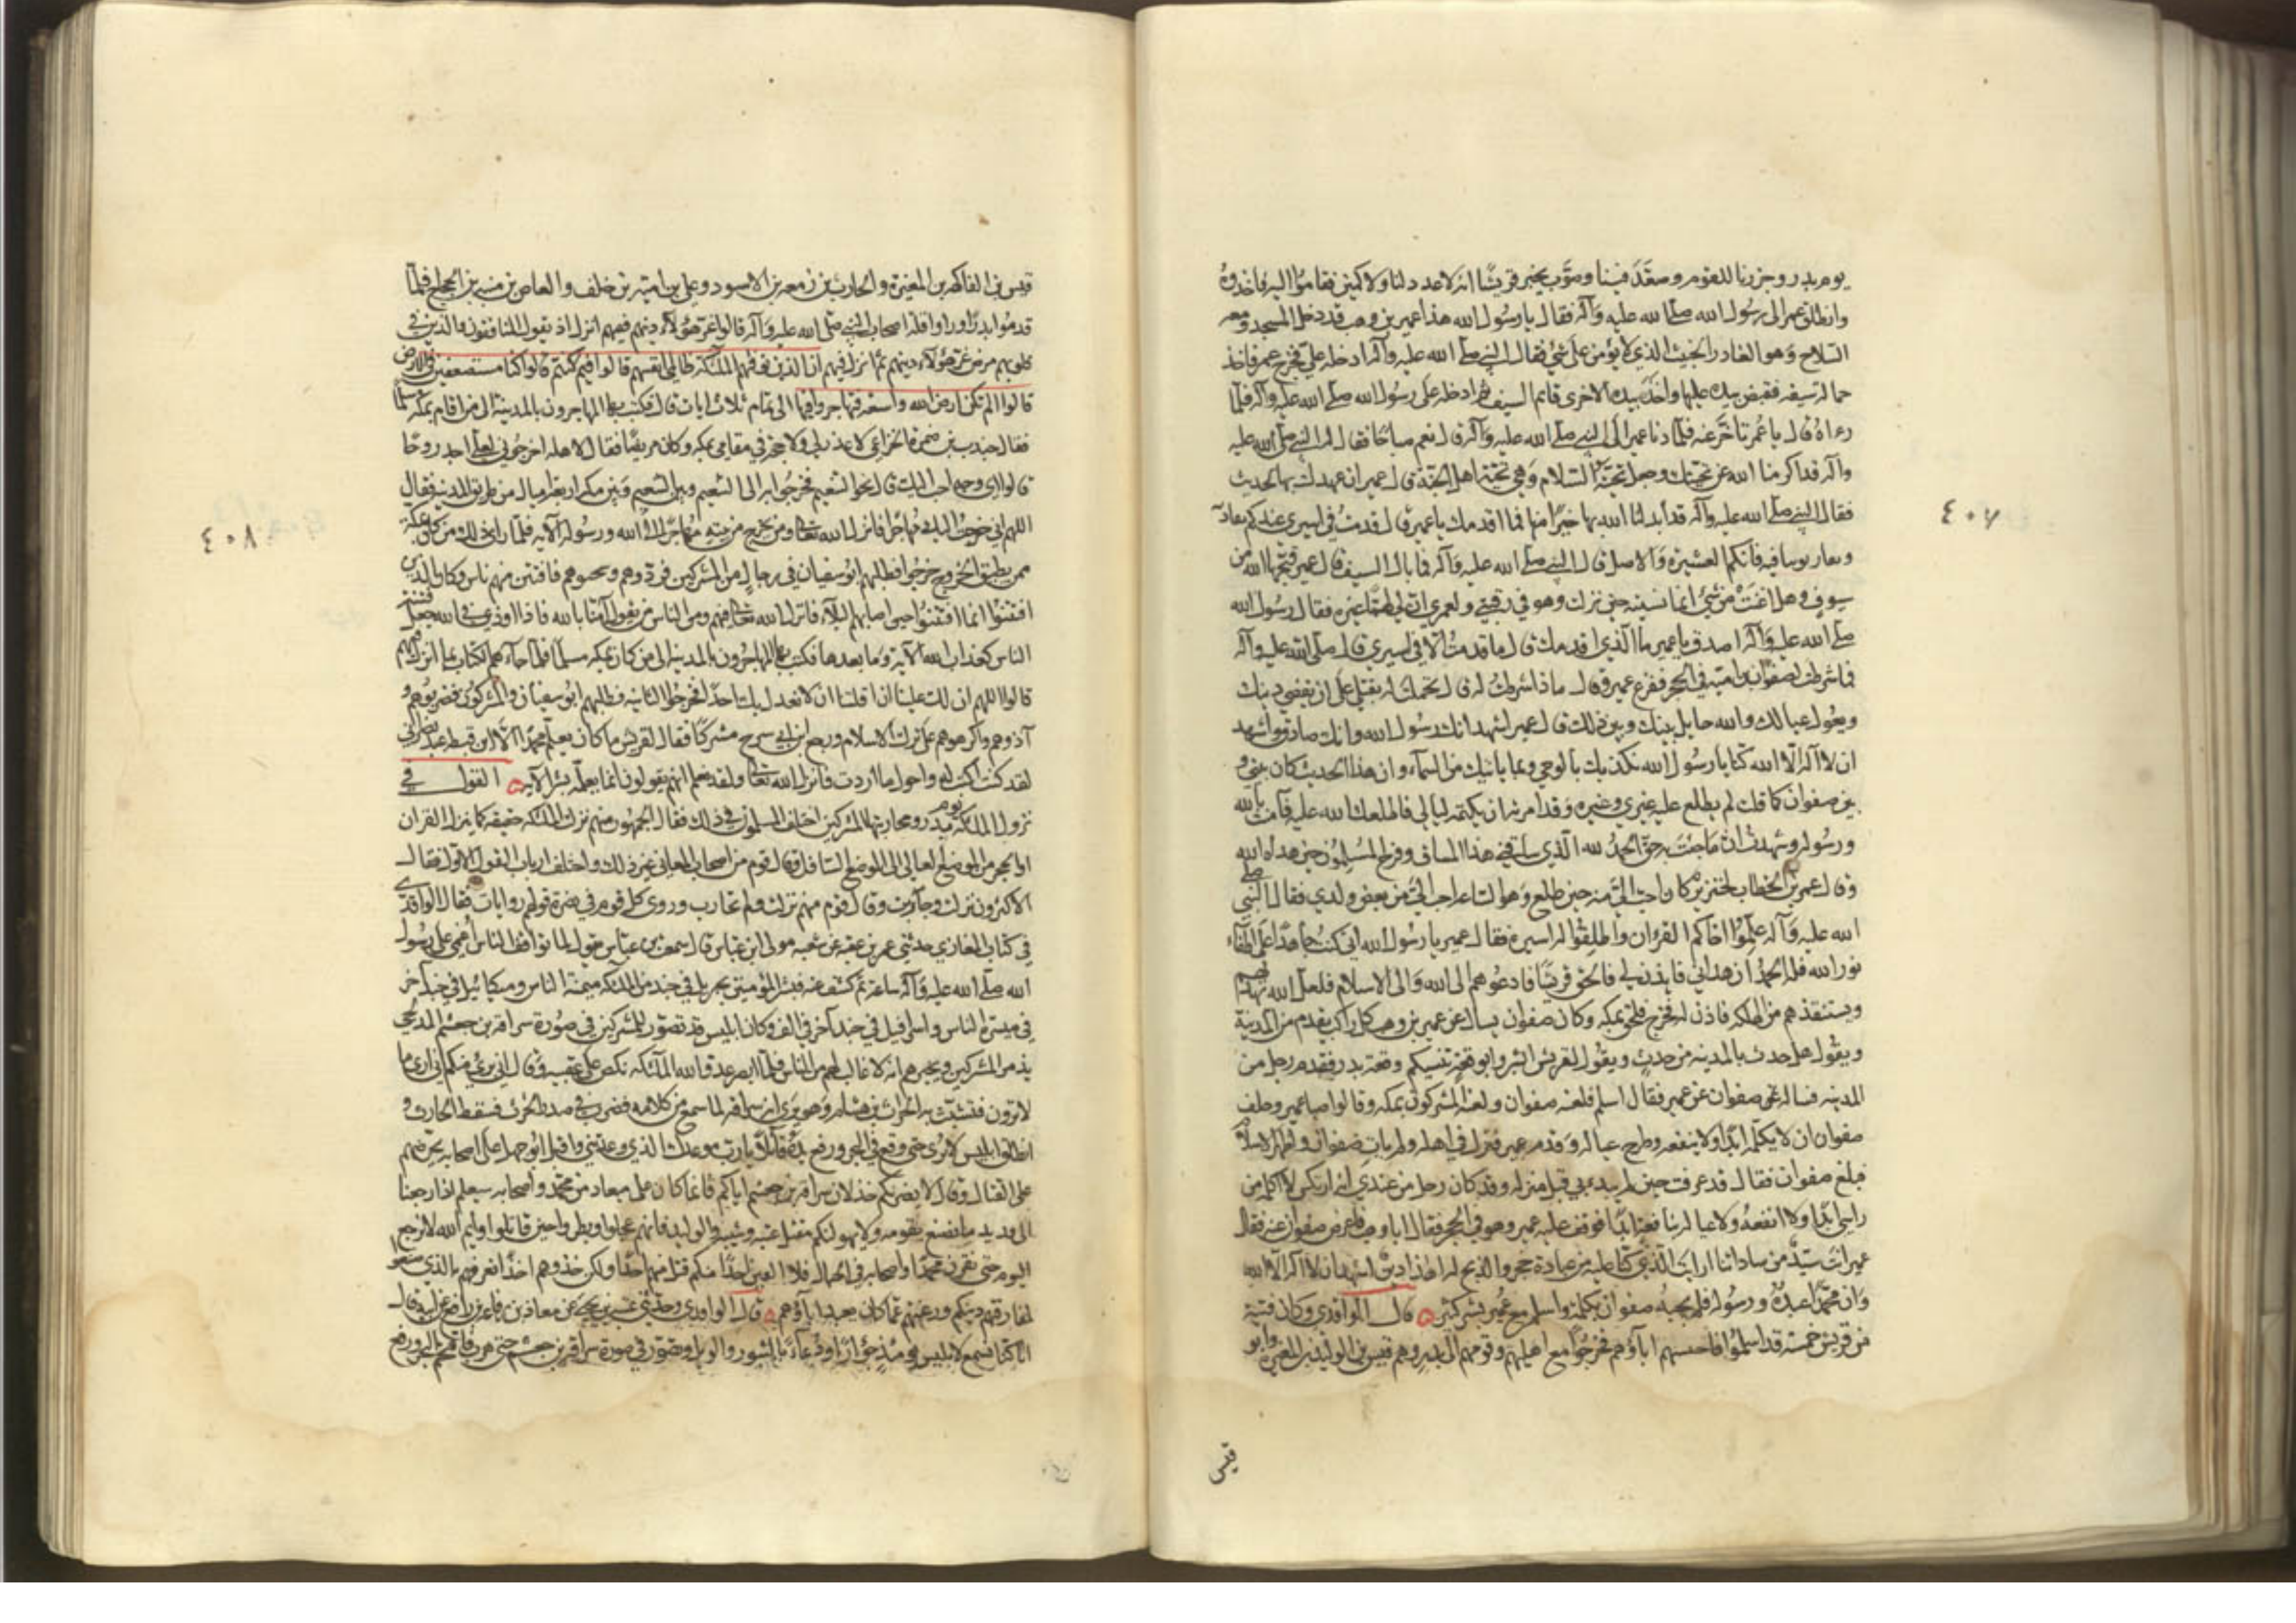 يوم بدر وحزرنا للقوم وصعّد فينا وصوّب يخبر قريشا انه لا عدد لنا ولا كمين فقاموا اليه فاخذوه
وانطلق عمر الى رسول الله صلى الله عليه وآله فقال يا رسول الله هذا عمير بن وهب قد دخل المسجد ومعه
السلاح وهو الغادر الخبيث الذي لا يؤمن على شئ فقال النبي صلى الله عليه وآله ادخله علي فخرج عمر فاخذ
حمالة سيفه فقبض بيده عليها واخذ بيده الاخرى قائم السيف ثم ادخله على رسول الله صلى الله عليه وآله فلما
رءاه قال يا عمر تاخر عنه فلما دنا عمير الى النبي صلى الله عليه وآله قال نعم صباحا فقال له النبي صلى الله عليه
وآله قد اكرمنا الله عن تحيتك وجعل تحيتنا السلام وهي تحية اهل الجنة قال عمير ان عهدك بها لحديث
فقال النبي صلى الله عليه وآله قد أبدلنا الله بها خيرا منها فما اقدمك يا عمير قال قدمت في اسيري عندكم
فانكم العشيرة والاصل قال النبي صلى الله عليه وآله فما بال السيف قال عمير قبحها الله من
سيوف وهل اغنت من شئ انما نسيته حين نزلت وهو في رقبتي ولعمري ان لي لهمّا غيره فقال رسول الله
صلى الله عليه وآله اصدق يا عمير ما الذي اقدمك قال ما قدمت الا في اسيري قال صلى الله عليه وآله
فما شرطت لصفوان بن امية في الحجر ففزع عمير وقال ماذا شرطت له قال تحملت له بقتلي على ان يقضي دينك
ويعول عيالك والله حايل بينك وبين ذلك قال عمير اشهد انك رسول الله وانك صادق واشهد
ان لا اله الا الله كنا يا رسول الله نكذبك بالوحي وبما ياتيك من السماء وان هذا الحديث كان بيني و
بين صفوان كما قلت لم يطلع عليه غيري وغيره وقد امرته ان يكتمه ليالي فاطلعك الله عليه فآمنت بالله
ورسوله وشهدت ان ما جئت به حق الحمد لله الذي ساقني هذا المساق وفرح المسلمون حين هداه الله
وقال عمر بن الخطاب لخنزير كان احب الي منه حين طلع وهو الساعة احب الي من بعض ولدي فقال النبي صلى
الله عليه وآله علموا اخاكم القرءان واطلقوا له اسيره فقال عمير يا رسول الله اني كنت جاهدا على اطفاء
نور الله فله الحمد ان هداني فايذن لي فالحق قريشا فادعوهم الى الله والى الاسلام فلعل الله يهديهم
ويستنقذهم من الهلكة فاذن له فخرج فلحق بمكة وكان صفوان يسال عن عمير بن وهب كل راكب يقدم من المدينة
ويقول هل حدث بالمدينة من حدث ويقول لقريش ابشروا بوقعة تنسيكم وقعة بدر فقدم رجل من
المدينة فساله صفوان عن عمير فقال اسلم فلعنه صفوان ولعنه المشركون بمكة وقالوا صبا عمير وحلف
صفوان ان لا يكلمه ابدا ولا ينفعه وطرح عياله وقدم عمير فنزل في اهله ولم يات صفوان واظهر الاسلام
فبلغ صفوان فقال قد عرفت حين لم يبدء بي قبل منزله وقد كان رجل من عندي انه ارتكس لا اكلمه من
راسي ابدا ولا انفعه ولا عياله بنافعة ابدا فوقف عليه عمير وهو في الحجر فقال ابا وهب فاعرض صفوان عنه فقال
عمير انت سيد من ساداتنا ارايت الذي كنا عليه من عبادة حجر والذبح له اهذا دين اشهد ان لا اله الا الله
وان محمدا عبده ورسوله فلم يجبه صفوان بكلمة واسلم مع عمير بشر كثير قال الواقدي وكان فتية
من قريش خمسة قد اسلموا فاحتبسهم آباؤهم فخرجوا مع اهليهم وقومهم الى بدر وهم قيس بن الوليد بن المغيرة وابو
قيس
٤٠٧
قيس بن الفاكه بن المغيرة والحارث بن زمعة بن الاسود وعلي بن امية بن خلف والعاص بن منبه بن الحجاج فلما
قدموا بدرا وراوا قلة اصحاب النبي صلى الله عليه وآله قالوا غر هؤلاء دينهم ففيهم انزل اذ يقول المنافقون والذين في
قلوبهم مرض غر هؤلاء دينهم ثم انزل فيهم ان الذين توفيهم الملئكة ظالمي انفسهم قالوا فيم كنتم قالوا كنا مستضعفين في الارض
قالوا الم تكن ارض الله واسعة فتهاجروا فيها الى تمام ثلاث ايات قال فكتب بها المهاجرون بالمدينة الى من اقام بمكة مسلما
فقال جندب بن ضمرة الخزاعي لا عذر لي ولا حجة في مقامي بمكة وكان مريضا فقال لاهله اخرجوني لعلي اجد روحا
قالوا اي وجه احب اليك قال نحو التنعيم فخرجوا به الى التنعيم وبين التنعيم وبين مكة اربعة اميال من طريق المدينة فقال
اللهم اني خرجت اليك مهاجرا فانزل الله تعالى ومن يخرج من بيته مهاجرا الى الله ورسوله الآية فلما راى ذلك من كان بمكة
ممن يطيق الخروج خرجوا فطلبهم ابو سفيان في رجال من المشركين فردوهم وسجنوهم فافتتن منهم ناس وكان الذين
افتتنوا انما افتتنوا حين اصابهم البلاء فانزل الله تعالى فيهم ومن الناس من يقول آمنا بالله فاذا اوذي في الله جعل فتنة
الناس كعذاب الله الآية وما بعدها فكتب بها المهاجرون بالمدينة الى من كان بمكة مسلما فلما جاءهم الكتاب بما انزل فيهم
قالوا اللهم ان لك علينا ان افلتنا ان لا نعدل بك احدا فخرجوا الثانية فطلبهم ابو سفيان والمشركون
آذوهم واكرهوهم على ترك الاسلام ورجع ابن ابي سرح مشركا فقال لقريش ما كان يعلم محمدا الا ابن قمطة عبد نصراني
لقد كنت اكتب له واحول ما اردت فانزل الله تعالى ولقد نعلم انهم يقولون انما يعلمه بشر الآية القول في
نزول الملئكة يوم بدر ومحاربتها المشركين اختلف المسلمون في ذلك فقال الجمهور منهم نزلت الملئكة حقيقة كما ينزل القرآن
او الحجر من الموضع العالي الى الموضع السافل وقال قوم من اصحاب المعاني غير ذلك واختلف ارباب القول الاول فقال
الاكثرون نزلت وحاربت وقال قوم منهم نزلت ولم تحارب وروى كل قوم في نصرة قولهم روايات فقال الواقدي
في كتاب المغازي حدثني عمر بن عقبة عن شعبة مولى ابن عباس قال سمعت ابن عباس يقول لما تواقف الناس أغمي على رسول
الله صلى الله عليه وآله ساعة ثم كشف عنه فبشر المؤمنين بجبريل في جند من الملئكة ميمنة الناس وميكائيل في جند آخر
في ميسرة الناس واسرافيل في جند آخر في الف وكان ابليس قد تصور للمشركين في صورة سراقة بن جعشم المدلجي
يذمر المشركين ويخبرهم انه لا غالب لهم من الناس فلما ابصر عدو الله الملئكة نكص على عقبيه وقال اني برئ منكم اني ارى ما
لا ترون فتشبث به الحارث بن هشام وهو يرى انه سراقة لما سمع من كلامه فضرب في صدر الحارث فسقط الحارث و
انطلق ابليس لا يرى حتى وقع في البحر ورفع يديه قائلا يا رب موعدك الذي وعدتني واقبل ابو جهل على اصحابه يحرضهم
على القتال وقال لا يغرنكم خذلان سراقة بن جعشم اياكم فانما كان على ميعاد من محمد واصحابه سيعلم اذا رجعنا
الى قديد ما نصنع بقومه ولا يهولنكم مقتل عتبة وشيبة والوليد فانهم عجلوا وبطروا حين قاتلوا وايم الله لا نرجع
اليوم حتى نقرن محمدا واصحابه في الحبال فلا الفين احدا منكم قتل منهم احدا ولكن خذوهم اخذا نعرفهم بالذي صنعوا
لمفارقتهم دينكم ورغبتهم عما كان يعبد آباؤهم قال الواقدي وحدثني عتبة بن يحيى عن معاذ بن رفاعة بن رافع عن ابيه قال
ان كنا لنسمع لابليس يومئذ خوارا ودعاء بالثبور والويل وتصور في صورة سراقة بن جعشم حتى هرب فاقتحم البحر ورفع
٤٠٨